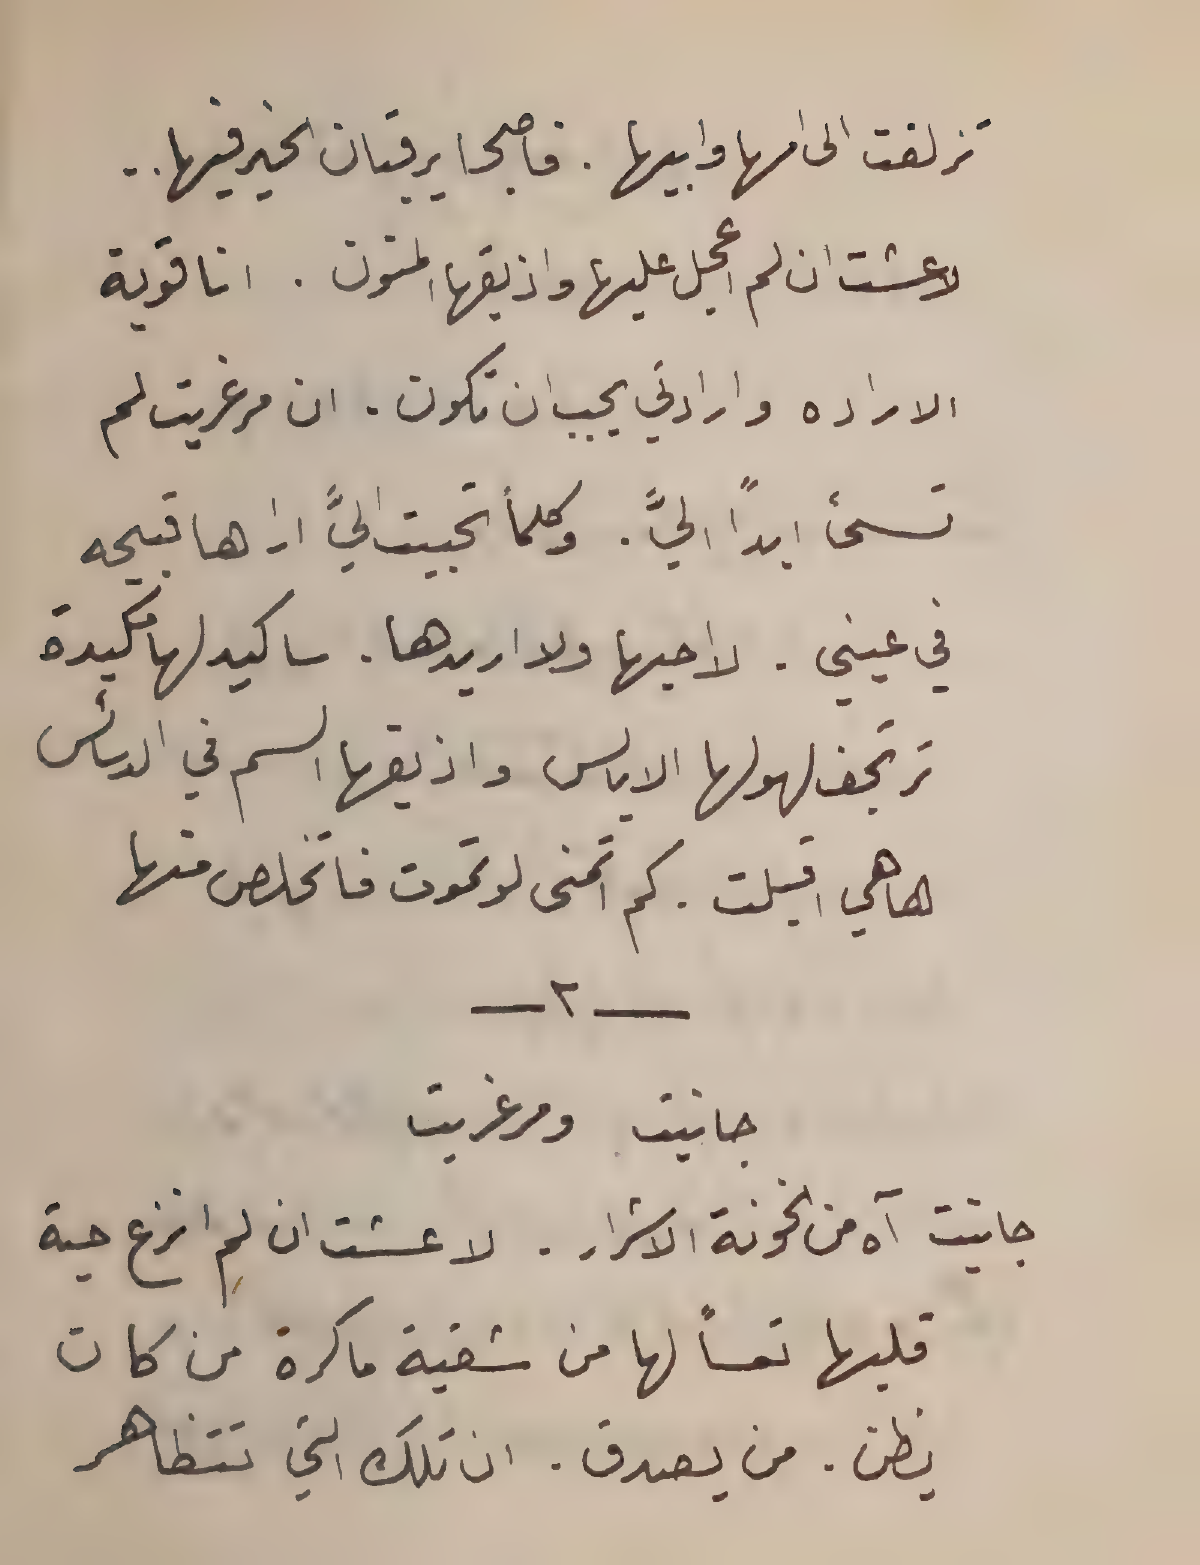 تزلفت الى امها وابيها . فاصبحا يرقبان الخير فيها ..
لاعشت ان لم اعجل عليها واذيقها المنون . انا قوية
الاراده وارادتي يجب ان تكون . ان مرغريت لم
تسئ ابداً اليَّ . وكلمأ تحببت اليَّ اراها قبيحه
في عيني . لااحبها ولا اريدها . ساكيد لها مكيدة
ترتجف لهولها الابالس واذيقها السم في الدسائس
هاهي اقبلت . كم اتمنى لو تموت فاتخلص منها
— ٢ —
جانيت ومرغريت
جانيت آه من الخونة الاشرار . لا عشت ان لم انزع حبة
قلبها تعسأً لها من شقية ماكرة من كان
يظن . من يصدق . ان تلك التي تتظاهر